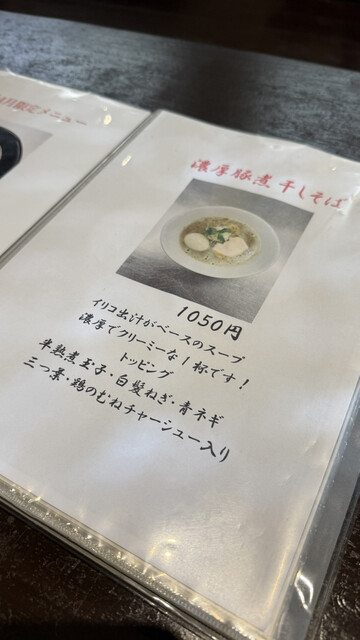 月限定メニュー
濃厚豚煮干しそば
1050円
イリコ出汁がベースのスープ
濃厚でクリーミーな1杯です!
トッピング
半熟煮玉子・白髪ねぎ・青ネギ
三つ葉・鶏のむねチャーシュー入り